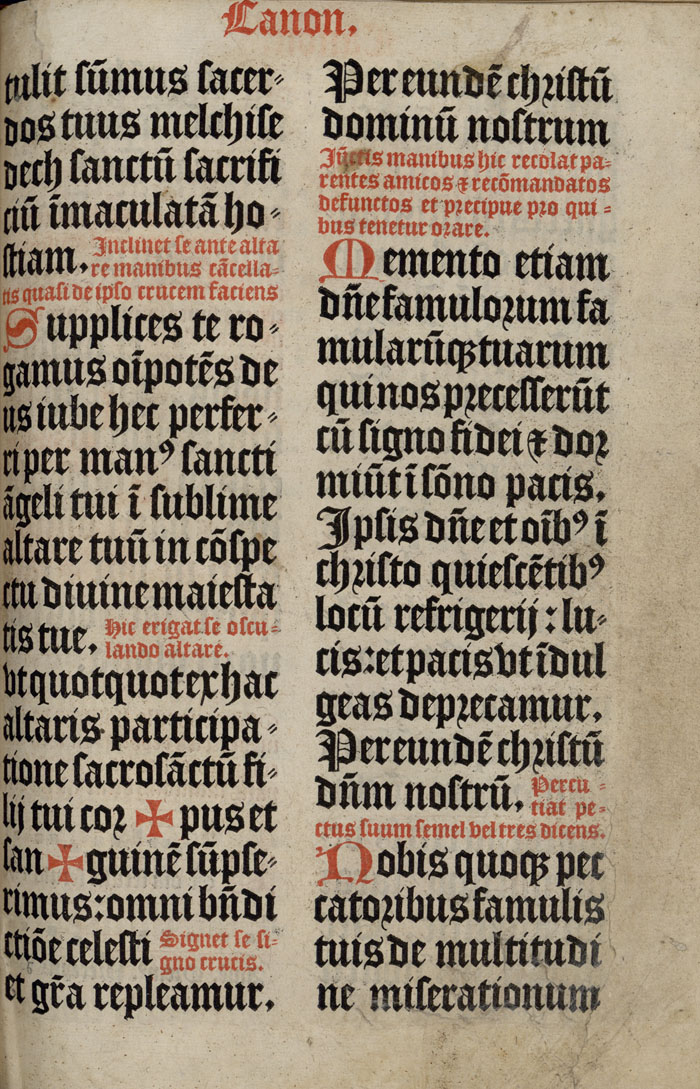 Canon.
tulit sūmus sacer⸗
dos tuus melchise
dech sanctū sacrifi
ciū īmaculatā ho⸗
stiam. Inclinet se ante alta
re manibus cācella⸗
tis quasi de ipso crucem faciens
Supplices te ro⸗
gamus oīpotēs de
us iube hec perfer⸗
ri per manꝰ sancti
āgeli tui ī sublime
altare tuū in cōspe
ctu diuine maiesta
tis tue. Hic erigat se oscu⸗
lando altare.
vt quotquot ex hac
altaris participa⸗
tione sacrosāctū fi⸗
lij tui coꝛ ✠ pus et
san ✠ guinē sūpse⸗
rimus: omni bn̄di
ctiōe celesti Signet se si⸗
gno crucis.
et gr̄a repleamur.
Per eundē chꝛistū
dominū nostrum
Jūctis manibus hic recolat pa⸗
rentes amicos ⁊ recōmandatos
defunctos et pꝛecipue pro qui⸗
bus tenetur oꝛare.
Memento etiam
dn̄e famuloꝛum fa
mularūqꝫ tuarum
qui nos pꝛecesserūt
cū signo fidei ⁊ doꝛ
miūt ī sōno pacis.
Ipsis dn̄e et oībꝰ ī
chꝛisto quiescētibꝰ
locū refrigerij: lu⸗
cis: et pacis vt īdul
geas depꝛecamur.
Per eundē chꝛistū
dn̄m nostrū. Percu⸗
tiat pe⸗
ctus suum semel vel tres dicens.
Nobis quoqꝫ pec
catoꝛibus famulis
tuis de multitudi
ne miserationum